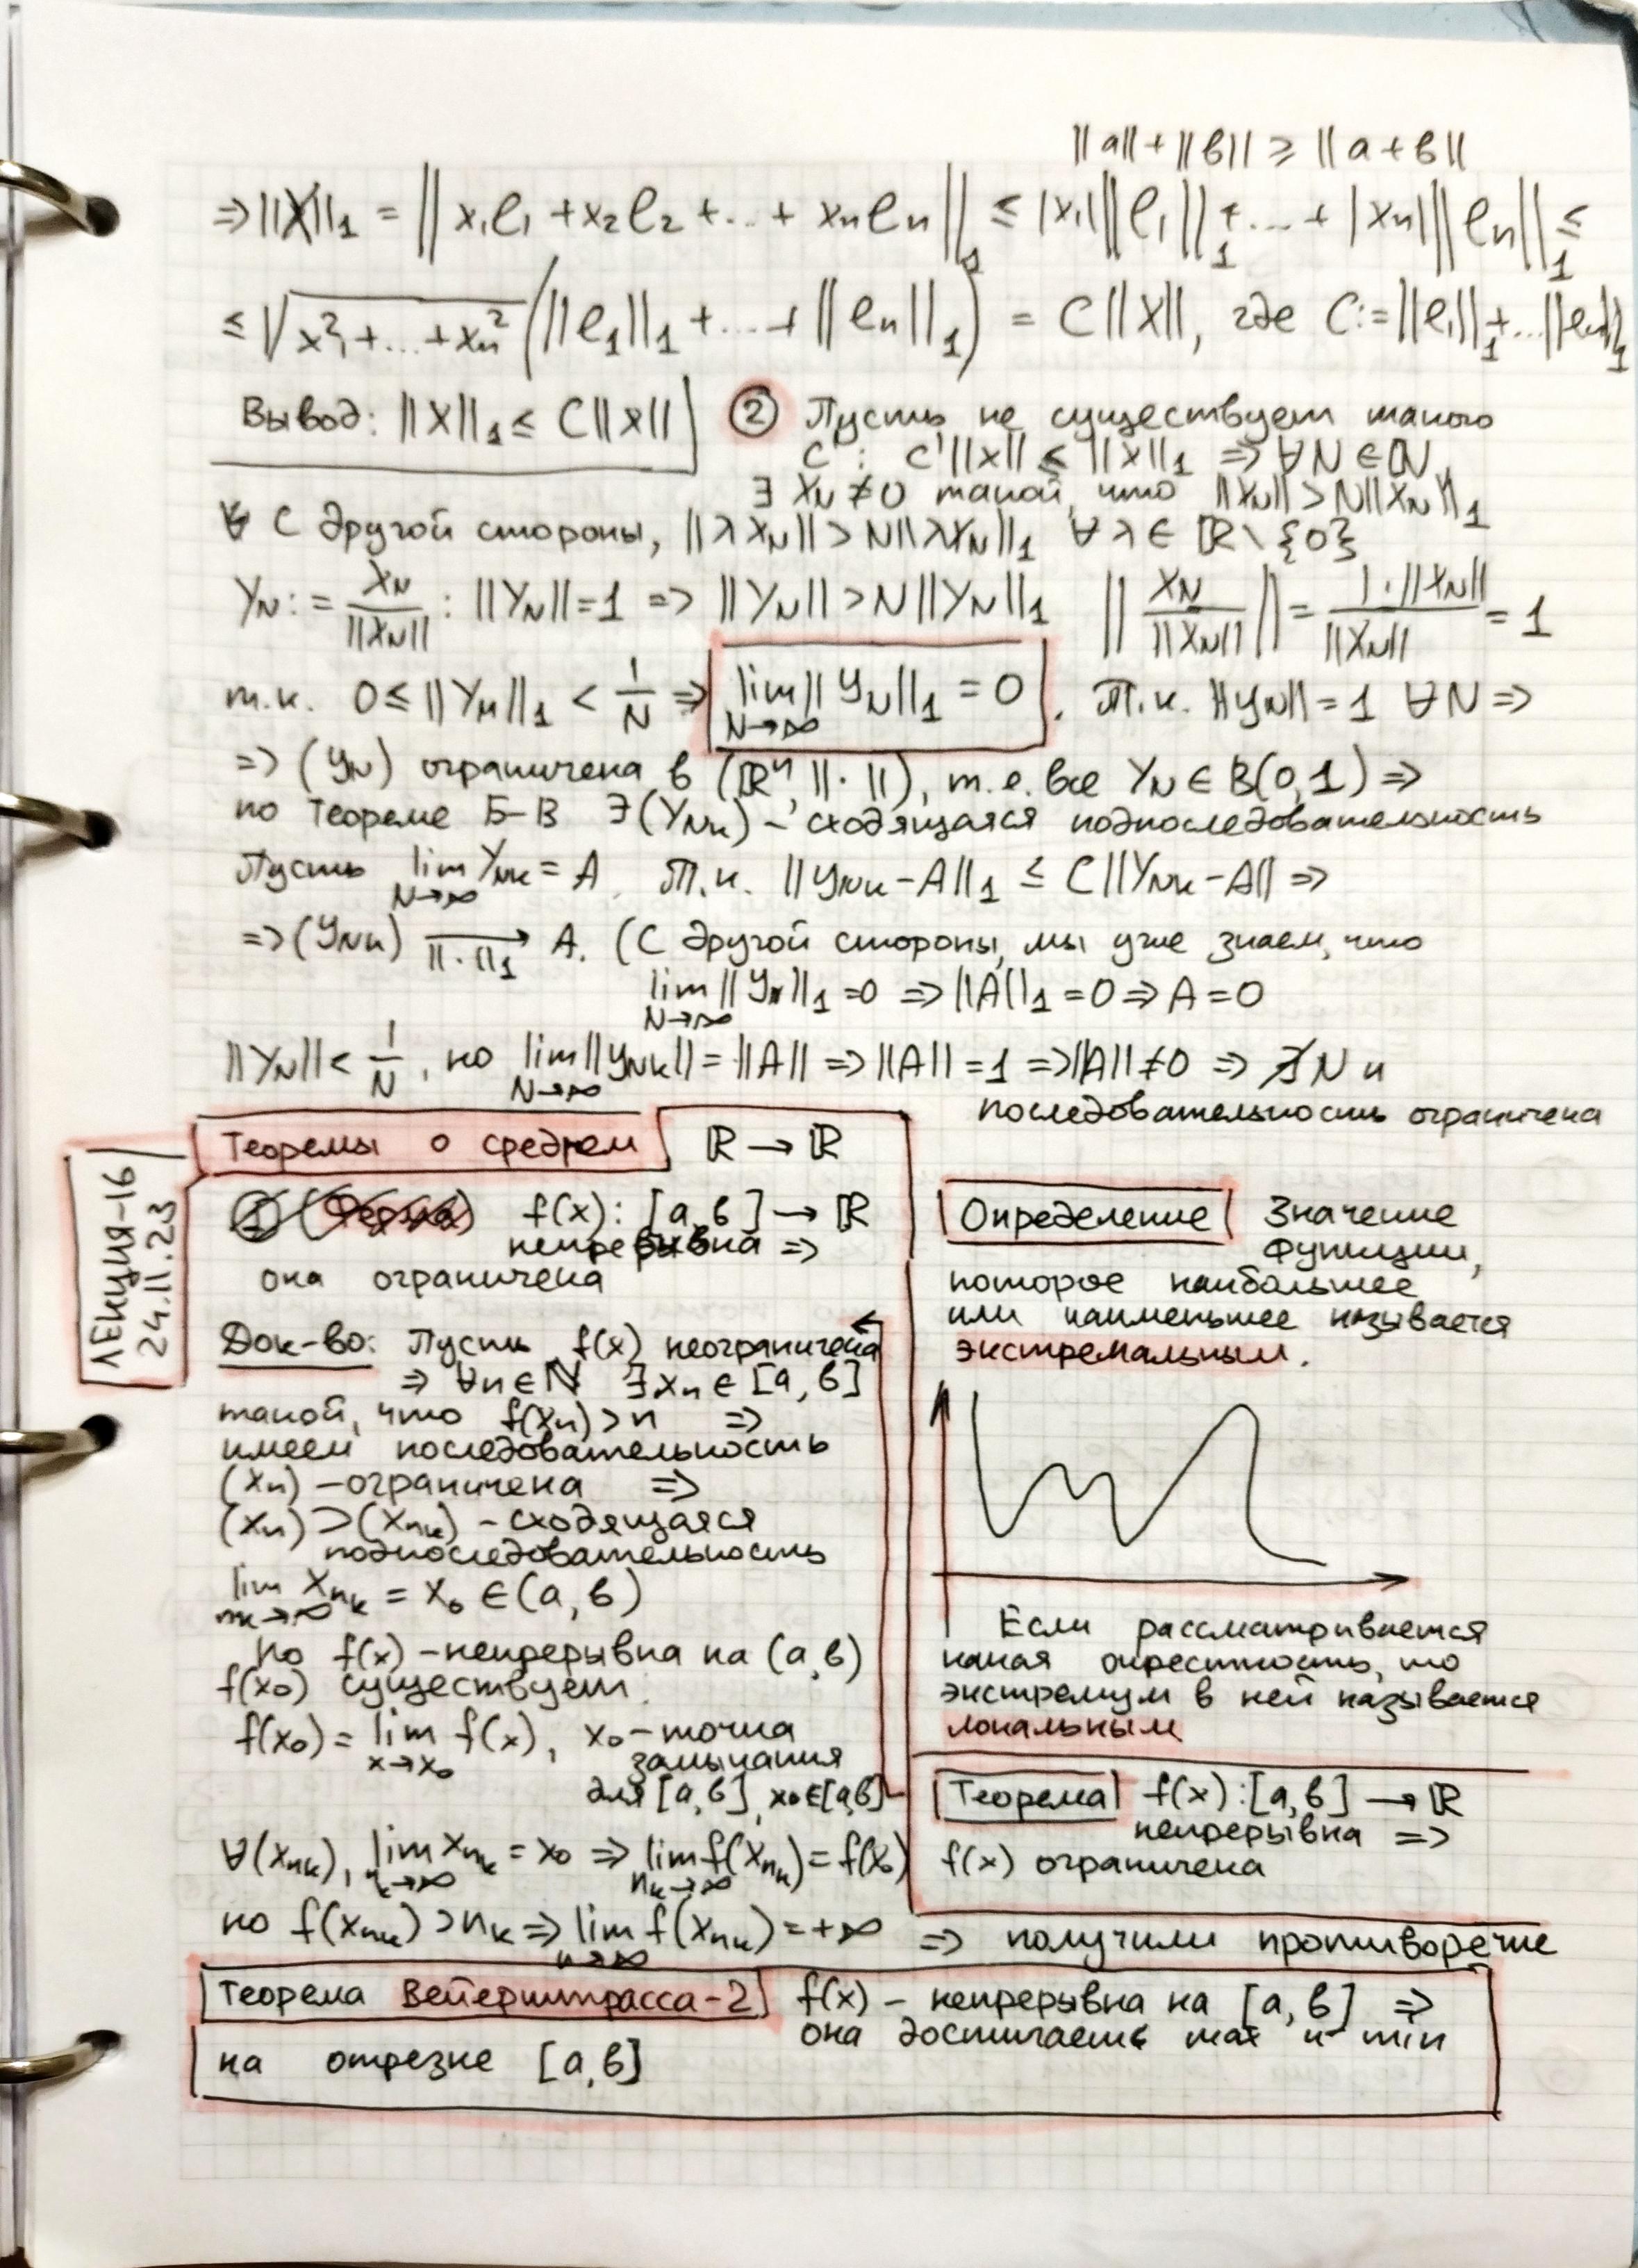 ||a||+||в|| ⩾ ||a+в||
⇒||X||₁ = ||x₁e₁+x₂e₂+...+xₙeₙ||₁ ≤ |x₁|||e₁||₁+...+|xₙ|||eₙ||₁ ≤
≤ √(x₁²+...+xₙ²) (||e₁||₁+...+||eₙ||₁) = C||X||, где C:=||e₁||₁+...||eₙ||₁
Вывод: ||X||₁ ≤ C||X||
② Пусть не существует такого
C': C'||x|| ≤ ||x||₁ ⇒ ∀N∈ℕ
∃ X_N ≠ 0 такой, что ||X_N|| > N||X_N||₁
С другой стороны, ||λX_N|| > N||λX_N||₁ ∀λ∈ℝ\{0}
Y_N := X_N/||X_N|| : ||Y_N||=1 ⇒ ||Y_N|| > N||Y_N||₁ ||X_N/||X_N|||| = 1·||X_N||/||X_N|| = 1
т.к. 0 ≤ ||Y_N||₁ < 1/N ⇒ lim_{N→∞} ||Y_N||₁ = 0. Т.к. ||y_N||=1 ∀N ⇒
⇒ (y_N) ограничена в (ℝⁿ, ||·||), т.е. все Y_N ∈ B(0,1) ⇒
по теореме Б-В ∃(Y_{Nk}) – сходящаяся подпоследовательность
Пусть lim_{N→∞} Y_{Nk} = A. Т.к. ||y_{Nk}-A||₁ ≤ C||Y_{Nk}-A|| ⇒
⇒(y_{Nk}) →_{||·||₁} A. (С другой стороны, мы уже знаем, что
lim_{N→∞} ||y_N||₁ = 0 ⇒ ||A||₁ = 0 ⇒ A = 0
||Y_N|| < 1/N, но lim_{N→∞} ||y_{Nk}|| = ||A|| ⇒ ||A|| = 1 ⇒ ||A|| ≠ 0 ⇒ ∄N и
последовательность ограничена
ЛЕКЦИЯ-16
24.11.23
Теоремы о среднем ℝ → ℝ
① (Ферма) f(x): [a,в] → ℝ
непрерывна ⇒
она ограничена
Док-во: Пусть f(x) неограничена
⇒ ∀n∈ℕ ∃xₙ∈[a,в]
такой, что f(xₙ)>n ⇒
имеем последовательность
(xₙ) – ограничена ⇒
(xₙ)⊃(x_{nk}) – сходящаяся
подпоследовательность
lim_{nk→∞} x_{nk} = x₀ ∈(a,в)
Но f(x) – непрерывна на (a,в)
f(x₀) существует.
f(x₀) = lim_{x→x₀} f(x), x₀ – точка
замыкания
для [a,в], x₀∈[a,в]
∀(x_{nk}), lim_{nk→∞} x_{nk} = x₀ ⇒ lim_{nk→∞} f(x_{nk}) = f(x₀)
но f(x_{nk}) > n_k ⇒ lim_{n→∞} f(x_{nk}) = +∞ ⇒ получили противоречие
Определение Значение
функции,
которое наибольшее
или наименьшее называется
экстремальным.
Если рассматривается
какая окрестность, то
экстремум в ней называется
локальным
Теорема f(x):[a,в] → ℝ
непрерывна ⇒
f(x) ограничена
Теорема Вейерштрасса-2 f(x) – непрерывна на [a,в] ⇒
она достигает max и min
на отрезке [a,в]